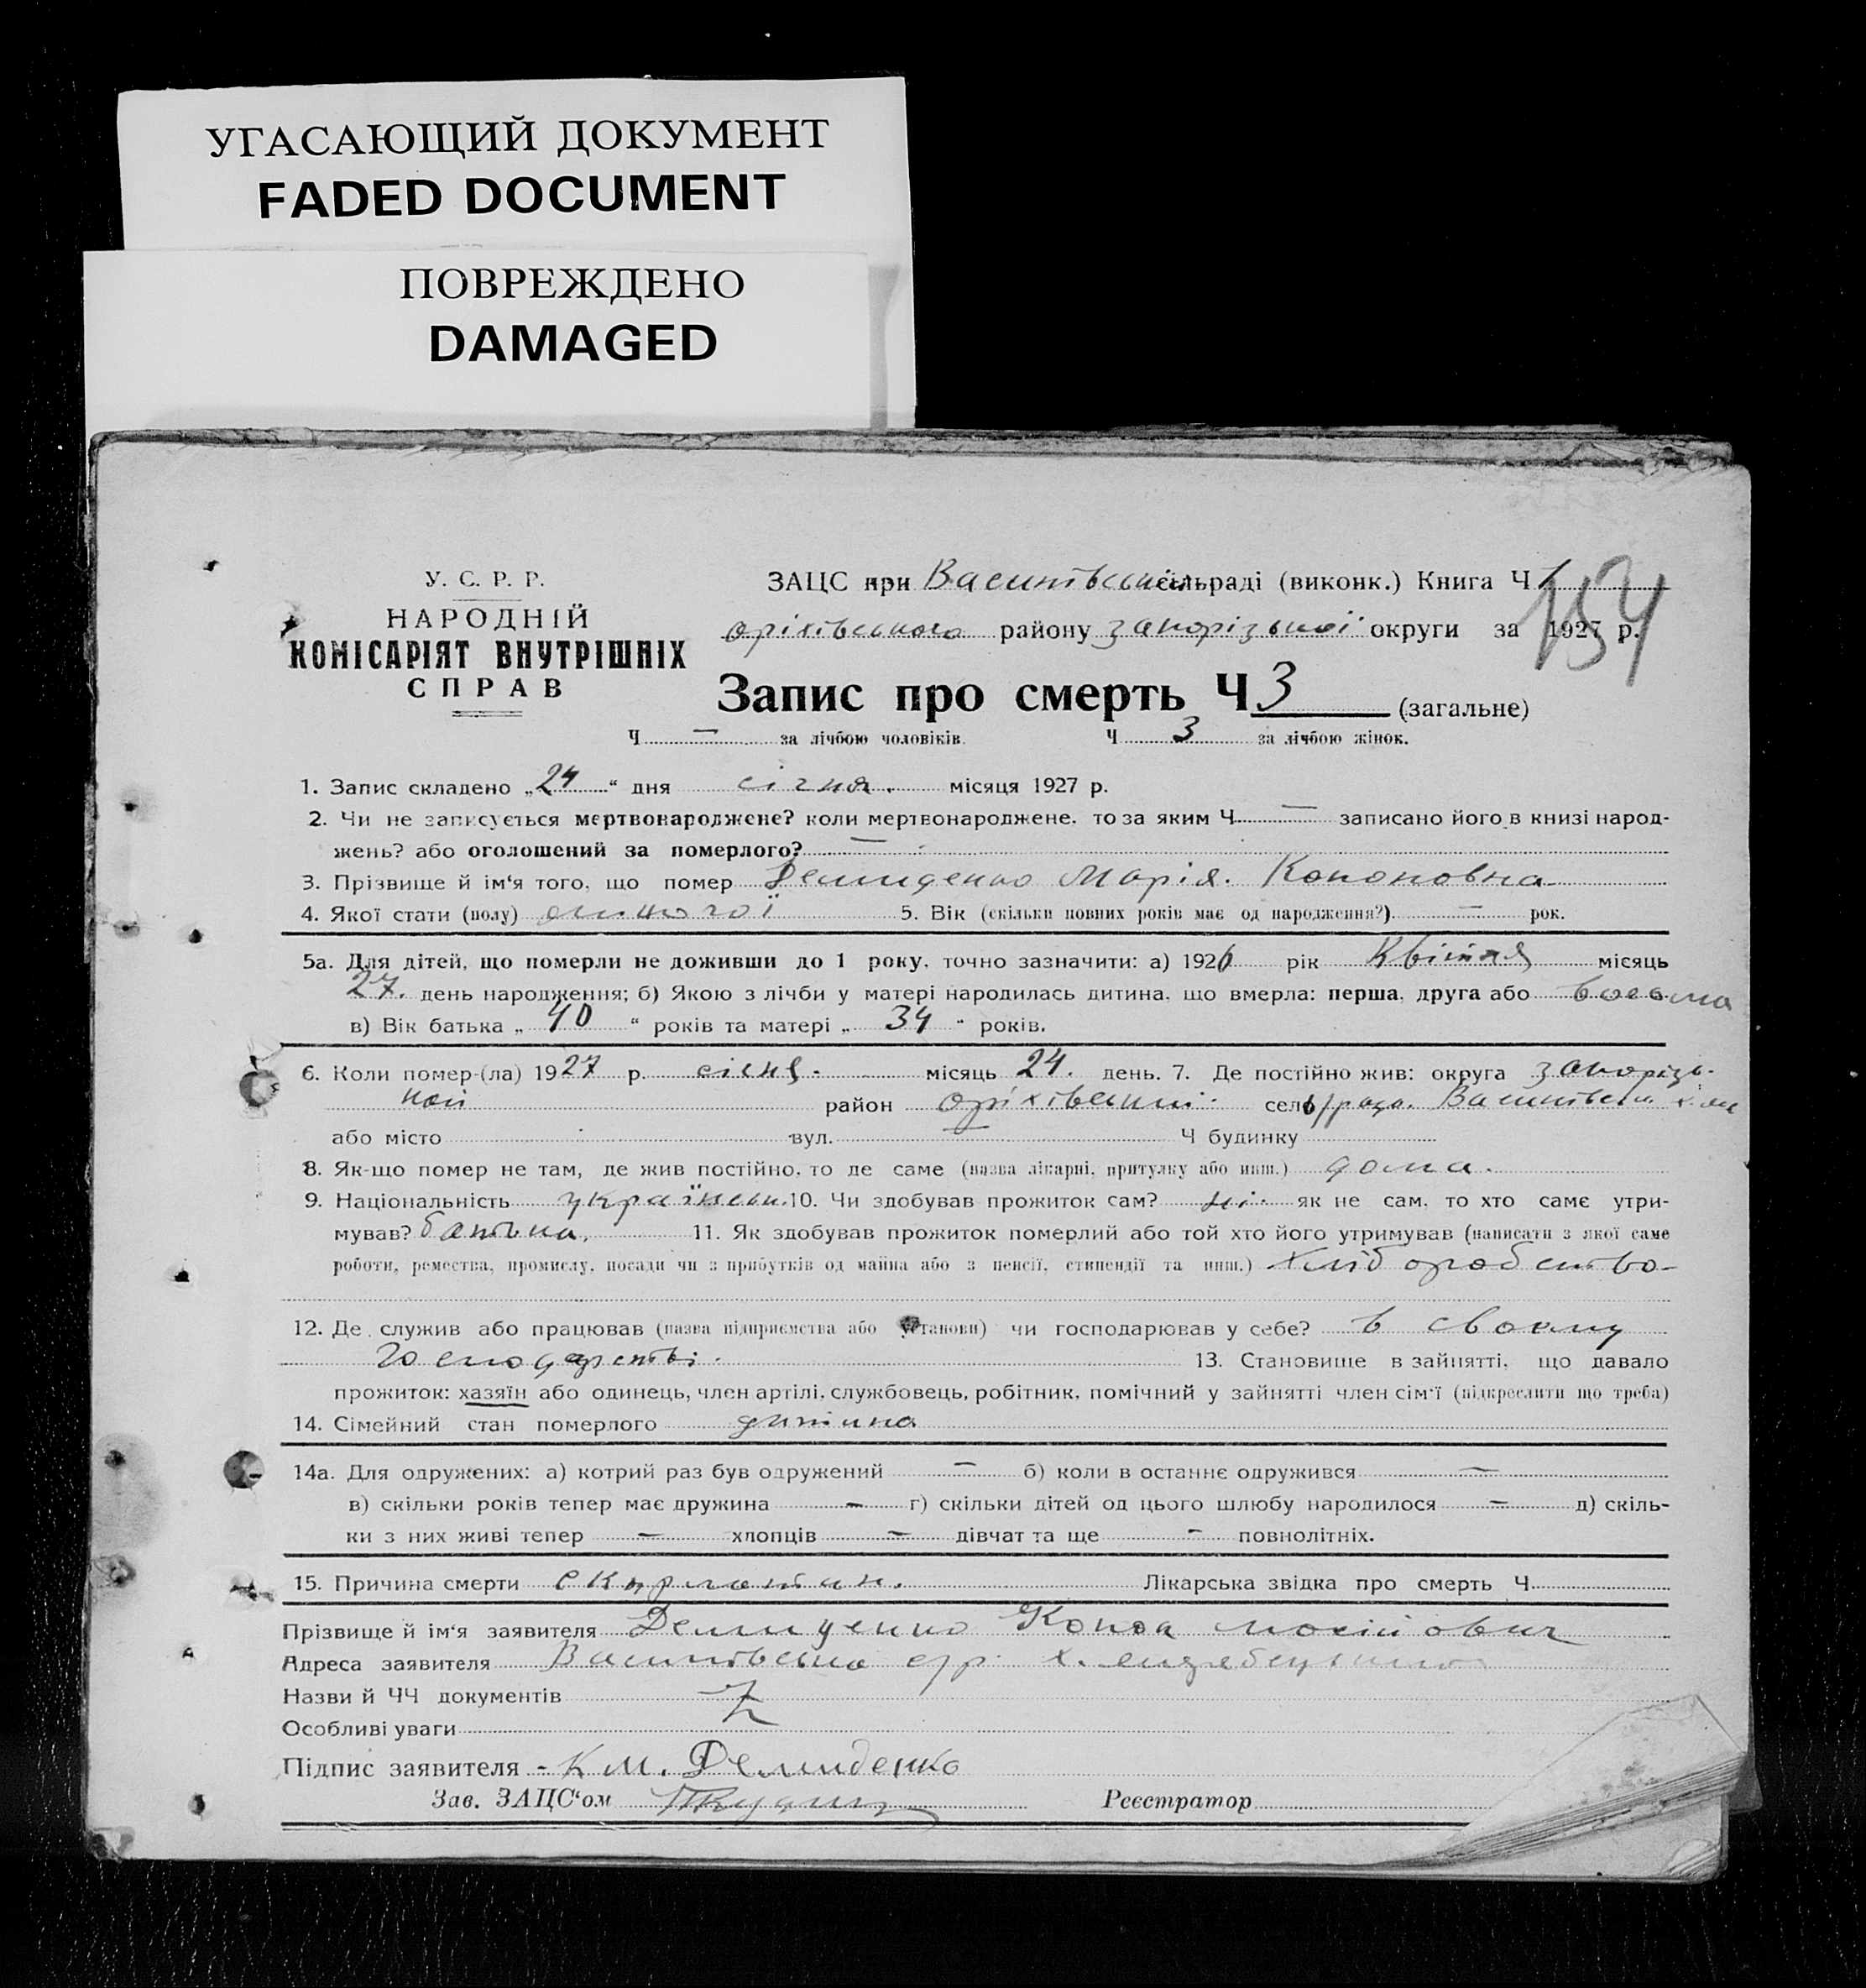 УГАСАЮЩИЙ ДОКУМЕНТ
FADED DOCUMENT
ПОВРЕЖДЕНО
DAMAGED
154
У. С. Р. Р.
НАРОДНІЙ
КОМІСАРІЯТ ВНУТРІШНІХ
СПРАВ
ЗАЦС при сільраді (виконк.) Книга Ч 1
оріхівського району запорізької округи за 1927 р.
Запис про смерть Ч 3 (загальне)
Ч — за лічбою чоловіків. Ч 3 за лічбою жінок.
1. Запис складено „24“ дня січня. місяця 1927 р.
2. Чи не записується мертвонароджене? коли мертвонароджене, то за яким Ч — записано його в книзі народ-
жень? або оголошений за померлого? —
3. Прізвище й ім‘я того, що помер Демиденко Марія. Кононовна
4. Якої стати (полу) 5. Вік (скільки повних років має од народження?) — рок.
5а. Для дітей, що померли не доживши до 1 року, точно зазначити: а) 1926 рік Квітня місяць
27. день народження; б) Якою з лічби у матері народилась дитина, що вмерла: перша, друга або восьма
в) Вік батька „40“ років та матері „34“ років.
6. Коли помер-(ла) 1927 р. січня. місяць 24. день. 7. Де постійно жив: округа запорізь-
кой район оріхівський село/рада.
або місто вул. — Ч будинку
8. Як-що помер не там, де жив постійно, то де саме (назва лікарні, притулку або инш.) дома.
9. Національність українськ. 10. Чи здобував прожиток сам? ні. як не сам, то хто саме утри-
мував? батьки, 11. Як здобував прожиток померлий або той хто його утримував (написати з якої саме
роботи, ремества, промислу, посади чи з прибутків од майна або з пенсії, стипендії та инш.) хліборобство
12. Де служив або працював (назва підприємства або установи) чи господарював у себе? в своєму
господарстві. 13. Становище в зайнятті, що давало
прожиток: хазяїн або одинець, член артілі, службовець, робітник, помічний у зайнятті член сім‘ї (підкреслити що треба)
14. Сімейний стан померлого дитина
14а. Для одружених: а) котрий раз був одружений — б) коли в останнє одружився —
в) скільки років тепер має дружина — г) скільки дітей од цього шлюбу народилося — д) скіль-
ки з них живі тепер — хлопців — дівчат та ще — повнолітніх.
15. Причина смерти скарлатин. Лікарська звідка про смерть Ч
Прізвище й ім‘я заявителя Демиденко Конон
Адреса заявителя с/р. х.
Назви й ЧЧ документів
Особливі уваги
Підпис заявителя - К М. Демиденко
Зав. ЗАЦС‘ом Реєстратор